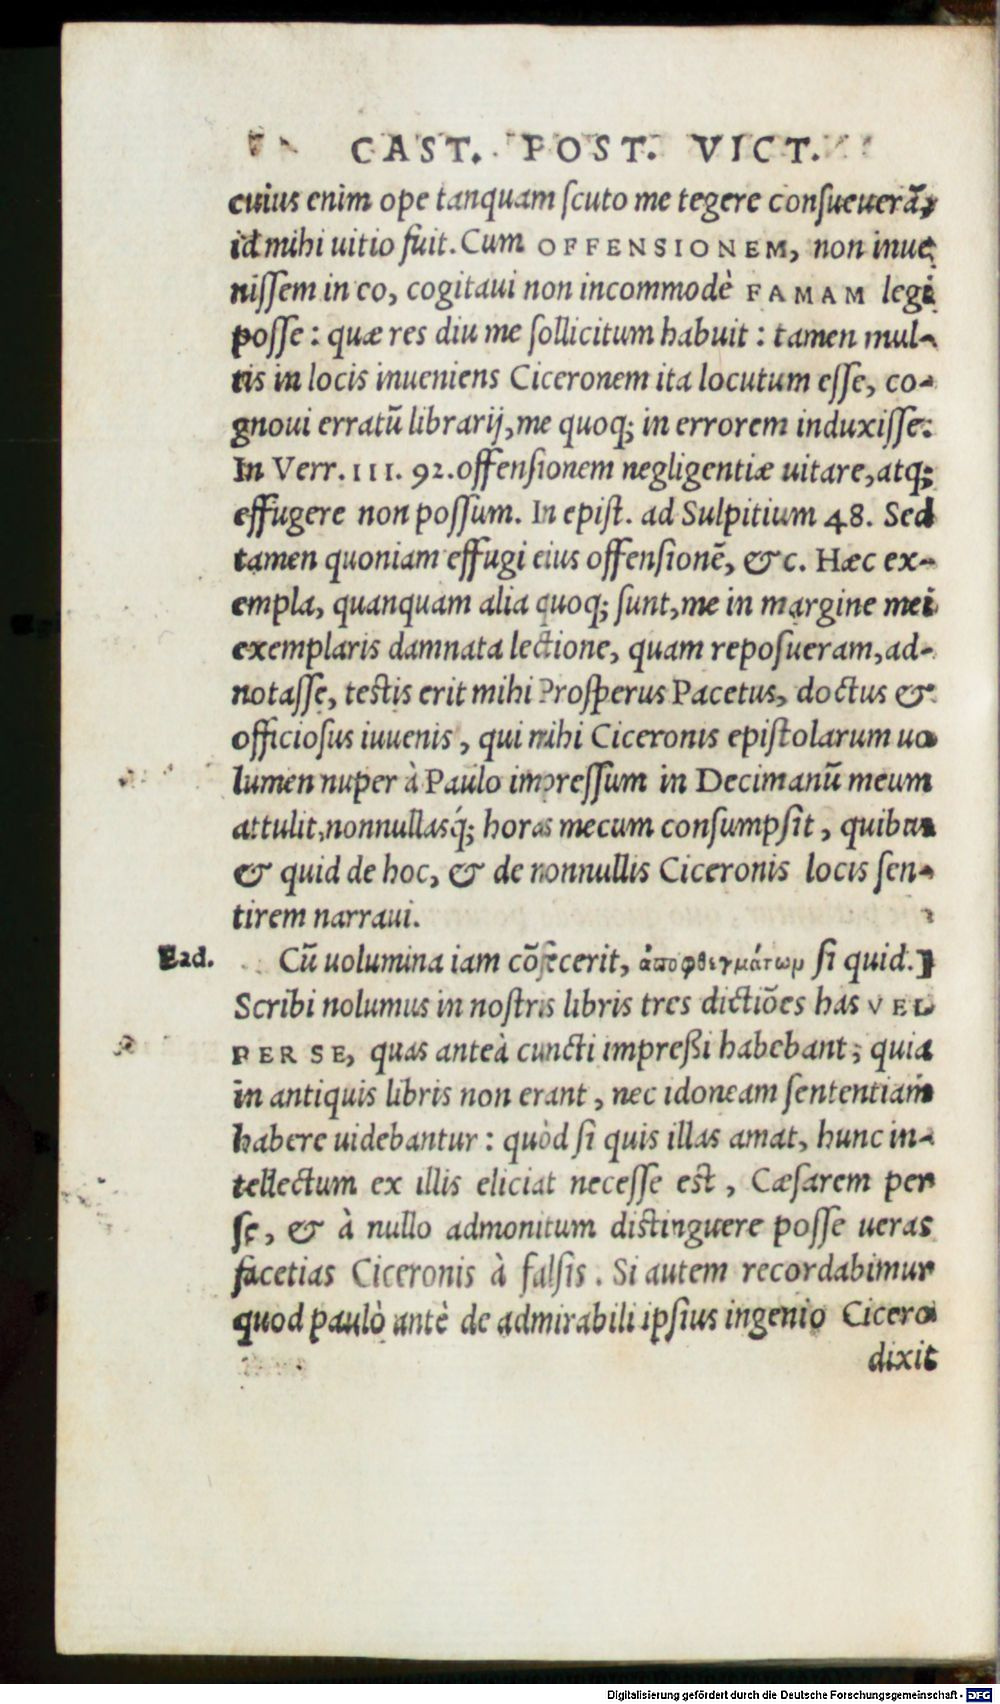 CAST. POST. VICT.
cuius enim ope tanquam ſcuto me tegere conſueuerã,
id mihi uitio fuit. Cum OFFENSIONEM, non inue
niſſem in eo, cogitaui non incommodè FAMAM legi
poſſe: quæ res diu me ſollicitum habuit: tamen mul-
tis in locis inueniens Ciceronem ita locutum eſſe, co-
gnoui erratũ librarij, me quoq; in errorem induxiſſe.
In Verr. III. 92. offenſionem negligentiæ uitare, atq;
effugere non poſſum. In epiſt. ad Sulpitium 48. Sed
tamen quoniam effugi eius offenſionẽ, & c. Hæc ex-
empla, quanquam alia quoq; ſunt, me in margine mei
exemplaris damnata lectione, quam repoſueram, ad-
notaſſe, teſtis erit mihi Proſperus Pacetus, doctus &
officioſus iuuenis, qui mihi Ciceronis epiſtolarum uo
lumen nuper à Paulo impreſſum in Decimanũ meum
attulit, nonnullasq́; horas mecum conſumpſit, quibus
& quid de hoc, & de nonnullis Ciceronis locis ſen-
tirem narraui.
Ead. Cũ uolumina iam cõfecerit, ἀποφθεγμάτωρ ſi quid.]
Scribi nolumus in noſtris libris tres dictiões has VEL
PER SE, quas anteà cuncti impreßi habebant; quia
in antiquis libris non erant, nec idoneam ſententiam
habere uidebantur: quòd ſi quis illas amat, hunc in-
tellectum ex illis eliciat neceſſe eſt, Cæſarem per
ſe, & à nullo admonitum diſtinguere poſſe ueras
facetias Ciceronis à falſis. Si autem recordabimur
quod paulò antè de admirabili ipſius ingenio Cicero
dixit
Digitalisierung gefördert durch die Deutsche Forschungsgemeinschaft - DFG